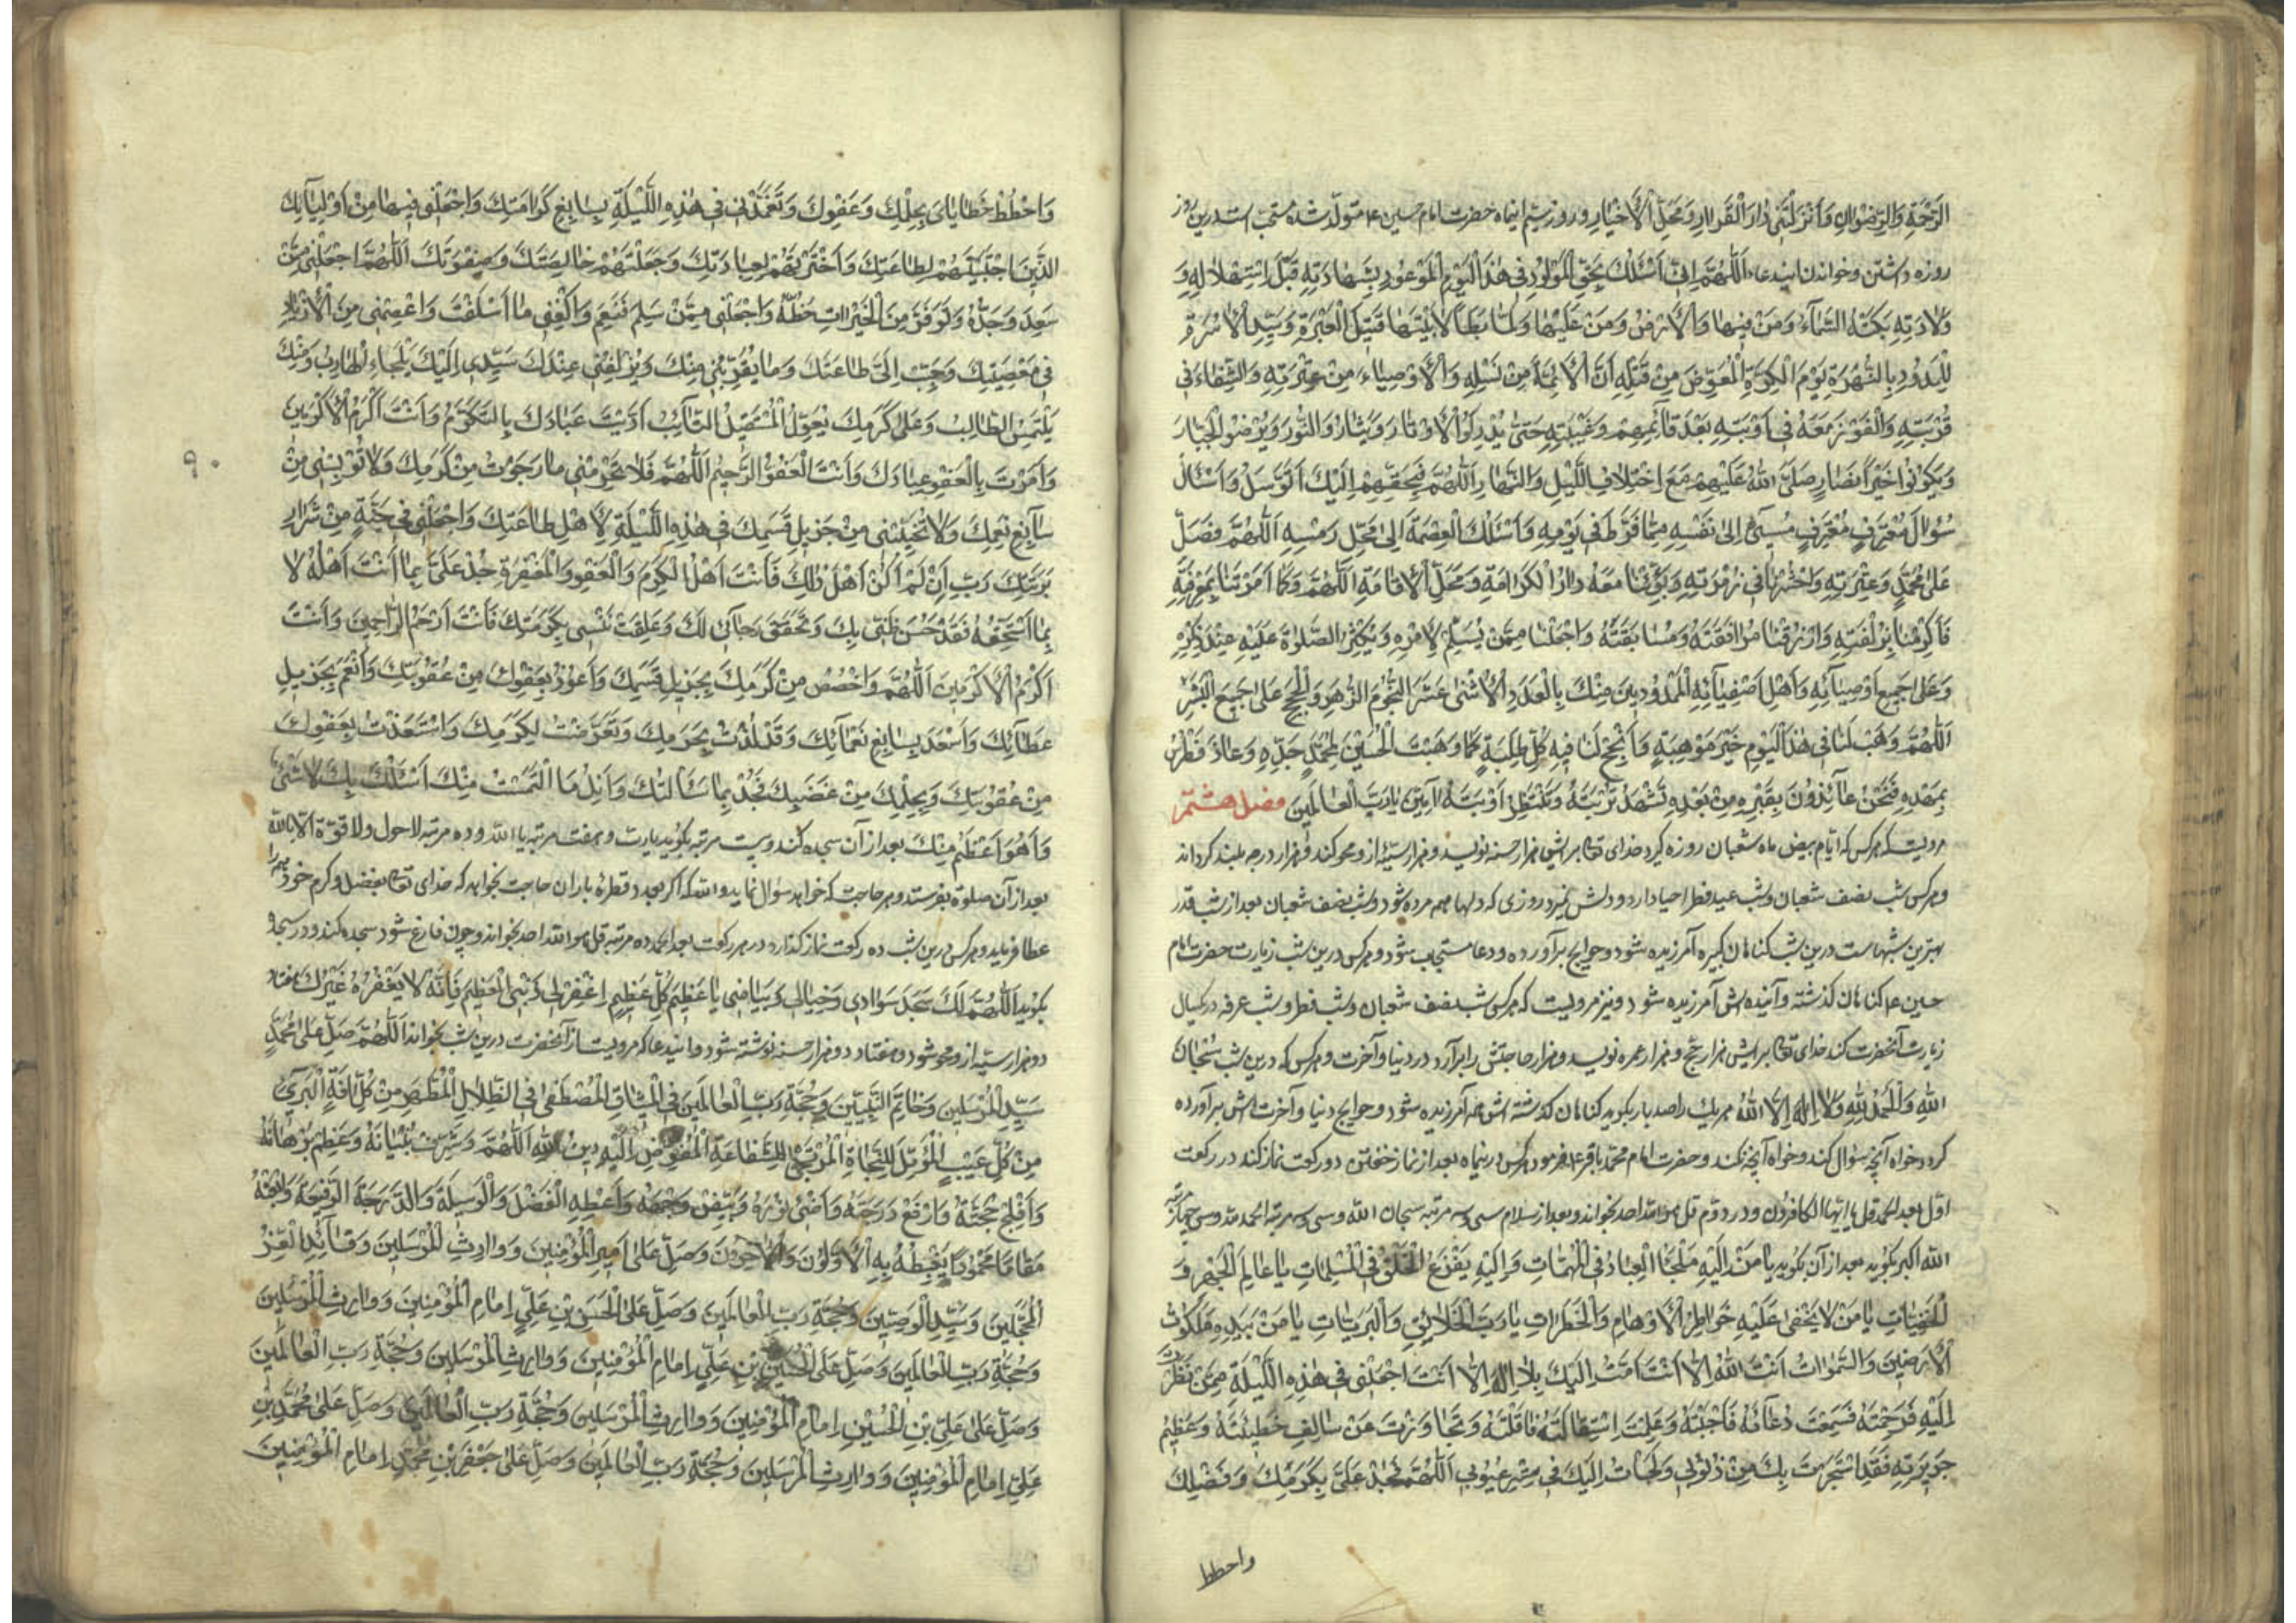 الرَّحْمَةِ وَالرِّضْوَانِ وَأَنْزَلْتَنِي دَارَ الْقَرَارِ وَمَحَلَّ الْأَخْيَارِ و روز سیم اینماه حضرت امام حسین ع متولد شده مستحب است درین روز
روزه داشتن و خواندن ایندعا اَللّٰهُمَّ اِنّی اَسْئَلُكَ بِحَقِّ الْمَوْلُودِ فِي هٰذَا الْيَوْمِ الْمَوْعُودِ بِشَهَادَتِهِ قَبْلَ اسْتِهْلَالِهِ وَ
وَلَادَتِهِ بَكَتْهُ السَّمَاءُ وَمَنْ فِيهَا وَالْأَرْضُ وَمَنْ عَلَيْهَا وَلَمَّا يَطَأْ لَابَتَيْهَا قَتِيلِ الْعَبْرَةِ وَسَيِّدِ الْأُسْرَةِ
الْمَمْدُودِ بِالنُّصْرَةِ يَوْمَ الْكَرَّةِ الْمُعَوَّضِ مِنْ قَتْلِهِ أَنَّ الْأَئِمَّةَ مِنْ نَسْلِهِ وَالْأَوْصِيَاءَ مِنْ عِتْرَتِهِ وَالشِّفَاءَ فِي
تُرْبَتِهِ وَالْفَوْزَ مَعَهُ فِي أَوْبَتِهِ بَعْدَ قَائِمِهِمْ وَغَيْبَتِهِ حَتَّى يُدْرِكُوا الْأَوْتَارَ وَيَثْأَرُوا الثَّارَ وَيُرْضُوا الْجَبَّارَ
وَيَكُونُوا خَيْرَ أَنْصَارٍ صَلَّى اللّٰهُ عَلَيْهِمْ مَعَ اخْتِلَافِ اللَّيْلِ وَالنَّهَارِ اَللّٰهُمَّ فَبِحَقِّهِمْ اِلَيْكَ اَتَوَسَّلُ وَاَسْئَلُ
سُؤَالَ مُعْتَرِفٍ مُقْتَرِفٍ مُسِيءٍ اِلَى نَفْسِهِ مِمَّا فَرَّطَ فِي يَوْمِهِ وَاَسْئَلُكَ الْعِصْمَةَ اِلَى مَحَلِّ رَمْسِهِ اَللّٰهُمَّ فَصَلِّ
عَلَى مُحَمَّدٍ وَعِتْرَتِهِ وَاحْشُرْنَا فِي زُمْرَتِهِ وَبَوِّئْنَا مَعَهُ دَارَ الْكَرَامَةِ وَمَحَلَّ الْاِقَامَةِ اَللّٰهُمَّ وَكَمَا اَكْرَمْتَنَا بِمَعْرِفَتِهِ
فَاَكْرِمْنَا بِزُلْفَتِهِ وَارْزُقْنَا مُرَافَقَتَهُ وَمُسَابَقَتَهُ وَاجْعَلْنَا مِمَّنْ يُسَلِّمُ لِاَمْرِهِ وَيُكْثِرُ الصَّلٰوةَ عَلَيْهِ عِنْدَ ذِكْرِهِ
وَعَلَى جَمِيعِ اَوْصِيَائِهِ وَاَهْلِ اَصْفِيَائِهِ الْمَمْدُودِينَ مِنْكَ بِالْعَدَدِ الْاِثْنَى عَشَرَ النُّجُومِ الزُّهَرِ وَالْحُجَجِ عَلَى جَمِيعِ الْبَشَرِ
اَللّٰهُمَّ وَهَبْ لَنَا فِي هٰذَا الْيَوْمِ خَيْرَ مَوْهِبَةٍ وَاَنْجِحْ لَنَا فِيهِ كُلَّ طَلِبَةٍ كَمَا وَهَبْتَ الْحُسَيْنَ لِمُحَمَّدٍ جَدِّهِ وَعَاذَ فُطْرُسُ
بِمَهْدِهِ فَنَحْنُ عَائِذُونَ بِقَبْرِهِ مِنْ بَعْدِهِ نَشْهَدُ تُرْبَتَهُ وَنَنْتَظِرُ اَوْبَتَهُ اٰمِينَ يَا رَبَّ الْعَالَمِينَ فصل هشتم
مرویست که هرکس که ایام بیض ماه شعبان روزه گیرد خدای تعالی برایش هزار حسنه نویسد و هزار سیئه ازو محو کند و هزار درجه بلند گرداند
و هرکس شب نصف شعبان و شب عید فطر احیا دارد دلش نمیرد روزی که دلها همه مرده شود و شب نصف شعبان بعد از شب قدر
بهترین شبهاست درین شب گناهان کبیره آمرزیده شود و حوایج برآورده و دعا مستجاب شود و هرکس درین شب زیارت حضرت امام
حسین ع کند گناهان گذشته و آینده اش آمرزیده شود و نیز مرویست که هرکس شب نصف شعبان و شب فطر و شب عرفه در یکسال
زیارت آنحضرت کند خدای تعالی برایش هزار حج و هزار عمره نویسد و هزار حاجتش را برآرد در دنیا و آخرت و هرکس که درین شب سُبْحَانَ
اللّٰهِ وَالْحَمْدُ لِلّٰهِ وَلَا اِلٰهَ اِلَّا اللّٰهُ هر یک را صد بار بگوید گناهان گذشته اش همه آمرزیده شود و حوایج دنیا و آخرت اش برآورده
گردد خواه آنچه سؤال کند و خواه آنچه نکند و حضرت امام محمد باقر ع فرمود هرکس درینماه بعد از نماز خفتن دو رکعت نماز کند در رکعت
اول بعد الحمد قل یا ایها الکافرون و در دوم قل هو الله احد بخواند و بعد از سلام سی و سه مرتبه سبحان الله و سی و سه مرتبه الحمد لله و سی و چهار مرتبه
الله اکبر بگوید بعد از آن بگوید يَا مَنْ اِلَيْهِ مَلْجَأُ الْعِبَادِ فِي الْمُهِمَّاتِ وَاِلَيْهِ يَفْزَعُ الْخَلْقُ فِي الْمُلِمَّاتِ يَا عَالِمَ الْجَهْرِ وَ
الْخَفِيَّاتِ يَا مَنْ لَا يَخْفَى عَلَيْهِ خَوَاطِرُ الْاَوْهَامِ وَالْخَطَرَاتِ يَا رَبَّ الْخَلَائِقِ وَالْبَرِيَّاتِ يَا مَنْ بِيَدِهِ مَلَكُوتُ
الْاَرَضِينَ وَالسَّمٰوَاتِ اَنْتَ اللّٰهُ اِلَّا اَنْتَ اَمُتُّ اِلَيْكَ بِلَا اِلٰهَ اِلَّا اَنْتَ اجْعَلْنِي فِي هٰذِهِ اللَّيْلَةِ مِمَّنْ نَظَرْتَ
اِلَيْهِ فَرَحِمْتَهُ فَسَمِعْتَ دُعَائَهُ فَاَجَبْتَهُ وَعَلِمْتَ اسْتِقَالَتَهُ فَاَقَلْتَهُ وَتَجَاوَزْتَ عَنْ سَالِفِ خَطِيئَتِهِ وَعَظِيمِ
جَرِيرَتِهِ فَقَدِ اسْتَجَرْتُ بِكَ مِنْ ذُنُوبِي وَلَجَأْتُ اِلَيْكَ فِي سَتْرِ عُيُوبِي اَللّٰهُمَّ فَجُدْ عَلَيَّ بِكَرَمِكَ وَفَضْلِكَ
واحطط
وَاحْطُطْ خَطَايَايَ بِحِلْمِكَ وَعَفْوِكَ وَتَغَمَّدْنِي فِي هٰذِهِ اللَّيْلَةِ بِسَابِغِ كَرَامَتِكَ وَاجْعَلْنِي فِيهَا مِنْ اَوْلِيَائِكَ
الَّذِينَ اجْتَبَيْتَهُمْ لِطَاعَتِكَ وَاخْتَرْتَهُمْ لِعِبَادَتِكَ وَجَعَلْتَهُمْ خَالِصَتَكَ وَصِفْوَتَكَ اَللّٰهُمَّ اجْعَلْنِي مِمَّنْ
سَعِدَ وَجَدُّهُ وَتَوَفَّرَ مِنَ الْخَيْرَاتِ حَظُّهُ وَاجْعَلْنِي مِمَّنْ سَلِمَ فَنَعِمَ وَاكْفِنِي مَا اَسْلَفْتُ وَاعْصِمْنِي مِنَ الْاِزْدِيَادِ
فِي مَعْصِيَتِكَ وَحَبِّبْ اِلَيَّ طَاعَتَكَ وَمَا يُقَرِّبُنِي مِنْكَ وَيُزْلِفُنِي عِنْدَكَ سَيِّدِي اِلَيْكَ يَلْجَأُ الْهَارِبُ وَمِنْكَ
يَلْتَمِسُ الطَّالِبُ وَعَلَى كَرَمِكَ يُعَوِّلُ الْمُسْتَقِيلُ التَّائِبُ اَدَّبْتَ عِبَادَكَ بِالتَّكَرُّمِ وَاَنْتَ اَكْرَمُ الْاَكْرَمِينَ
وَاَمَرْتَ بِالْعَفْوِ عِبَادَكَ وَاَنْتَ الْعَفُوُّ الرَّحِيمُ اَللّٰهُمَّ فَلَا تَحْرِمْنِي مَا رَجَوْتُ مِنْ كَرَمِكَ وَلَا تُؤْيِسْنِي مِنْ
۹۰
سَابِغِ نِعَمِكَ وَلَا تُخَيِّبْنِي مِنْ جَزِيلِ قِسَمِكَ فِي هٰذِهِ اللَّيْلَةِ لِاَهْلِ طَاعَتِكَ وَاجْعَلْنِي فِي جُنَّةٍ مِنْ شِرَارِ
بَرِيَّتِكَ رَبِّ اِنْ لَمْ اَكُنْ اَهْلَ ذٰلِكَ فَاَنْتَ اَهْلُ الْكَرَمِ وَالْعَفْوِ وَالْمَغْفِرَةِ جُدْ عَلَيَّ بِمَا اَنْتَ اَهْلُهُ لَا
بِمَا اَسْتَحِقُّهُ فَقَدْ حَسُنَ ظَنِّي بِكَ وَتَحَقَّقَ رَجَائِي لَكَ وَعَلِقَتْ نَفْسِي بِكَرَمِكَ فَاَنْتَ اَرْحَمُ الرَّاحِمِينَ وَاَنْتَ
اَكْرَمُ الْاَكْرَمِينَ اَللّٰهُمَّ وَاخْصُصْ مِنْ كَرَمِكَ بِجَزِيلِ قِسَمِكَ وَاَعُوذُ بِعَفْوِكَ مِنْ عُقُوبَتِكَ وَاَنْعَمُ بِجَزِيلِ
عَطَائِكَ وَاَسْعَدَ بِسَابِغِ نَعْمَائِكَ وَقَدْ لُذْتُ بِحَرَمِكَ وَتَعَرَّضْتُ لِكَرَمِكَ وَاسْتَعَذْتُ بِعَفْوِكَ
مِنْ عُقُوبَتِكَ وَبِحِلْمِكَ مِنْ غَضَبِكَ فَجُدْ بِمَا سَاَلْتُكَ وَاَنِلْ مَا الْتَمَسْتُ مِنْكَ اَسْئَلُكَ بِكَ لَا شَيْءَ
وَاَهُوَ اَعْظَمُ مِنْكَ بعد از آن سجده کند و بیست مرتبه بگوید یا رب و هفت مرتبه یا الله و ده مرتبه لا حول ولا قوة الا بالله
بعد از آن صلوة بفرستد و هر حاجت که خواهد سؤال نماید والله که اگر بعدد قطره باران حاجت بخواهد که خدای تعالی بفضل و کرم خود همه را
عطا فرماید و هرکس درین شب ده رکعت نماز گذارد در هر رکعت بعد الحمد ده مرتبه قل هو الله احد بخواند و چون فارغ شود سجده کند و در سجده
بگوید اَللّٰهُمَّ لَكَ سَجَدَ سَوَادِي وَخَيَالِي وَبَيَاضِي يَا عَظِيمَ كُلِّ عَظِيمٍ اِغْفِرْ لِي ذَنْبِيَ الْعَظِيمَ فَاِنَّهُ لَا يَغْفِرُهُ غَيْرُكَ هفتاد
دو هزار سیئه ازو محو شود و هفتاد دو هزار حسنه نوشته شود و ایندعا که مرویست از آنحضرت درین شب بخواند اَللّٰهُمَّ صَلِّ عَلَى مُحَمَّدٍ
سَيِّدِ الْمُرْسَلِينَ وَخَاتَمِ النَّبِيِّينَ وَحُجَّةِ رَبِّ الْعَالَمِينَ فِي الْمِيثَاقِ الْمُصْطَفَى فِي الظِّلَالِ الْمُطَهَّرِ مِنْ كُلِّ اٰفَةٍ الْبَرِيءِ
مِنْ كُلِّ عَيْبٍ الْمُؤَمَّلِ لِلنَّجَاةِ الْمُرْتَجَى لِلشَّفَاعَةِ الْمُفَوَّضِ اِلَيْهِ دِينُ اللّٰهِ اَللّٰهُمَّ وَشَرِّفْ بُنْيَانَهُ وَعَظِّمْ بُرْهَانَهُ
وَاَفْلِجْ حُجَّتَهُ وَارْفَعْ دَرَجَتَهُ وَاَضِئْ نُورَهُ وَبَيِّضْ وَجْهَهُ وَاَعْطِهِ الْفَضْلَ وَالْوَسِيلَةَ وَالدَّرَجَةَ الرَّفِيعَةَ وَابْعَثْهُ
مَقَامًا مَحْمُودًا يَغْبِطُهُ بِهِ الْاَوَّلُونَ وَالْاٰخِرُونَ وَصَلِّ عَلَى اَمِيرِ الْمُؤْمِنِينَ وَوَارِثِ الْمُرْسَلِينَ وَقَائِدِ الْغُرِّ
الْمُحَجَّلِينَ وَسَيِّدِ الْوَصِيِّينَ وَحُجَّةِ رَبِّ الْعَالَمِينَ وَصَلِّ عَلَى الْحَسَنِ بْنِ عَلِيٍّ اِمَامِ الْمُؤْمِنِينَ وَوَارِثِ الْمُرْسَلِينَ
وَحُجَّةِ رَبِّ الْعَالَمِينَ وَصَلِّ عَلَى الْحُسَيْنِ بْنِ عَلِيٍّ اِمَامِ الْمُؤْمِنِينَ وَوَارِثِ الْمُرْسَلِينَ وَحُجَّةِ رَبِّ الْعَالَمِينَ
وَصَلِّ عَلَى عَلِيِّ بْنِ الْحُسَيْنِ اِمَامِ الْمُؤْمِنِينَ وَوَارِثِ الْمُرْسَلِينَ وَحُجَّةِ رَبِّ الْعَالَمِينَ وَصَلِّ عَلَى مُحَمَّدِ بْنِ
عَلِيٍّ اِمَامِ الْمُؤْمِنِينَ وَوَارِثِ الْمُرْسَلِينَ وَحُجَّةِ رَبِّ الْعَالَمِينَ وَصَلِّ عَلَى جَعْفَرِ بْنِ مُحَمَّدٍ اِمَامِ الْمُؤْمِنِينَ